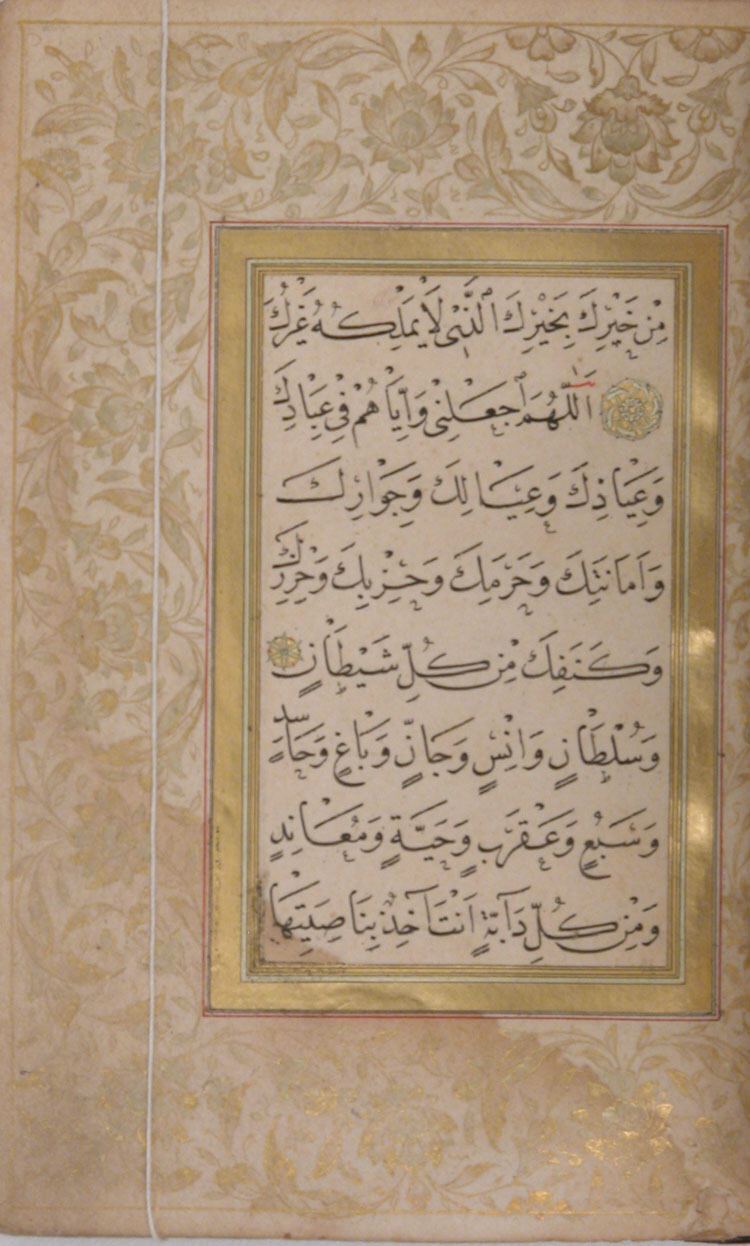 مِنْ خَيْرِكَ بِخَيْرِكَ الَّذِي لَا يَمْلِكُهُ غَيْرُكَ
اَللّٰهُمَّ اجْعَلْنِي وَاِيَّاهُمْ فِي عِبَادِكَ
وَعِيَاذِكَ وَعِيَالِكَ وَجِوَارِكَ
وَاَمَانَتِكَ وَحَرَمِكَ وَحِزْبِكَ وَحِرْزِكَ
وَكَنَفِكَ مِنْ كُلِّ شَيْطَانٍ
وَسُلْطَانٍ وَاِنْسٍ وَجَانٍّ وَبَاغٍ وَحَاسِدٍ
وَسَبُعٍ وَعَقْرَبٍ وَحَيَّةٍ وَمُعَانِدٍ
وَمِنْ كُلِّ دَآبَّةٍ اَنْتَ آخِذٌ بِنَاصِيَتِهَا